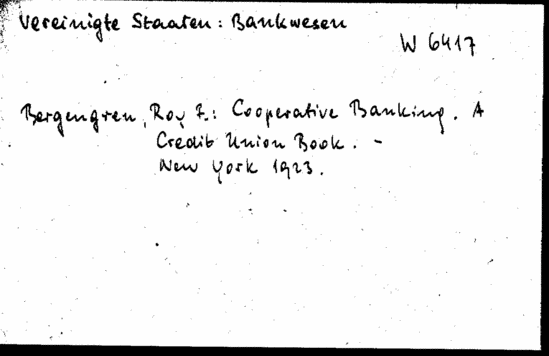 Vereinigte Staaten: Bankwesen
W 6417
Bergengren, Roy F.: Cooperative Banking. A
Credit Union Book. -
New York 1923.